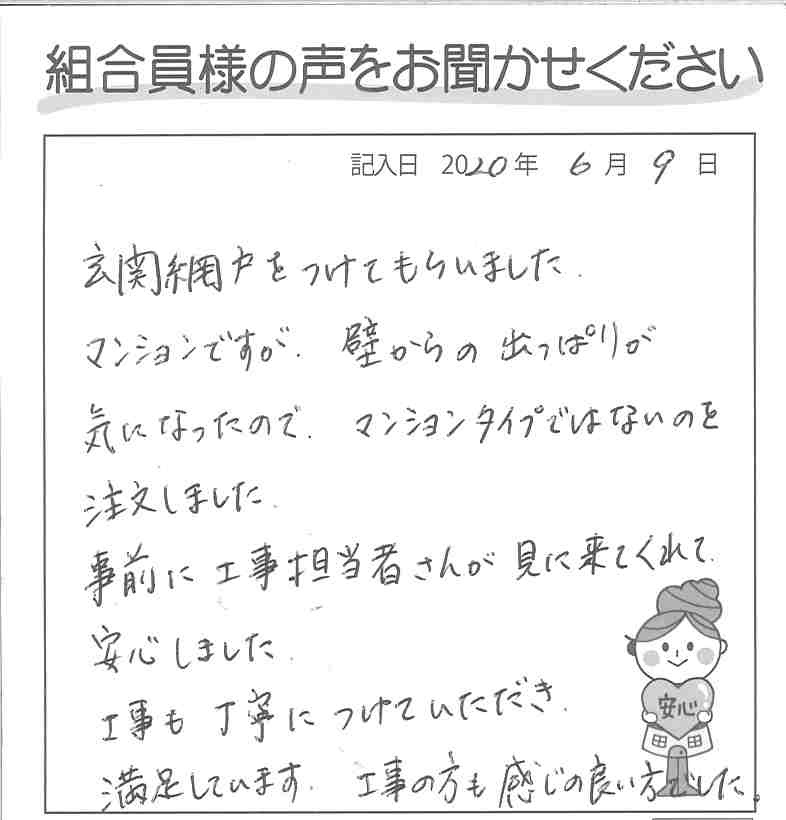 組合員様の声をお聞かせください
記入日 2020年 6月 9日
玄関網戸をつけてもらいました.
マンションですが. 壁からの出っぱりが
気になったので. マンションタイプではないのを
注文しました.
事前に工事担当者さんが見に来てくれて.
安心しました.
工事も丁寧につけていただき.
満足しています. 工事の方も感じの良い方でした。
安心